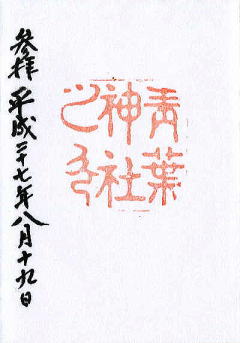 青葉
神社
之印
参拝 平成二十七年八月十九日